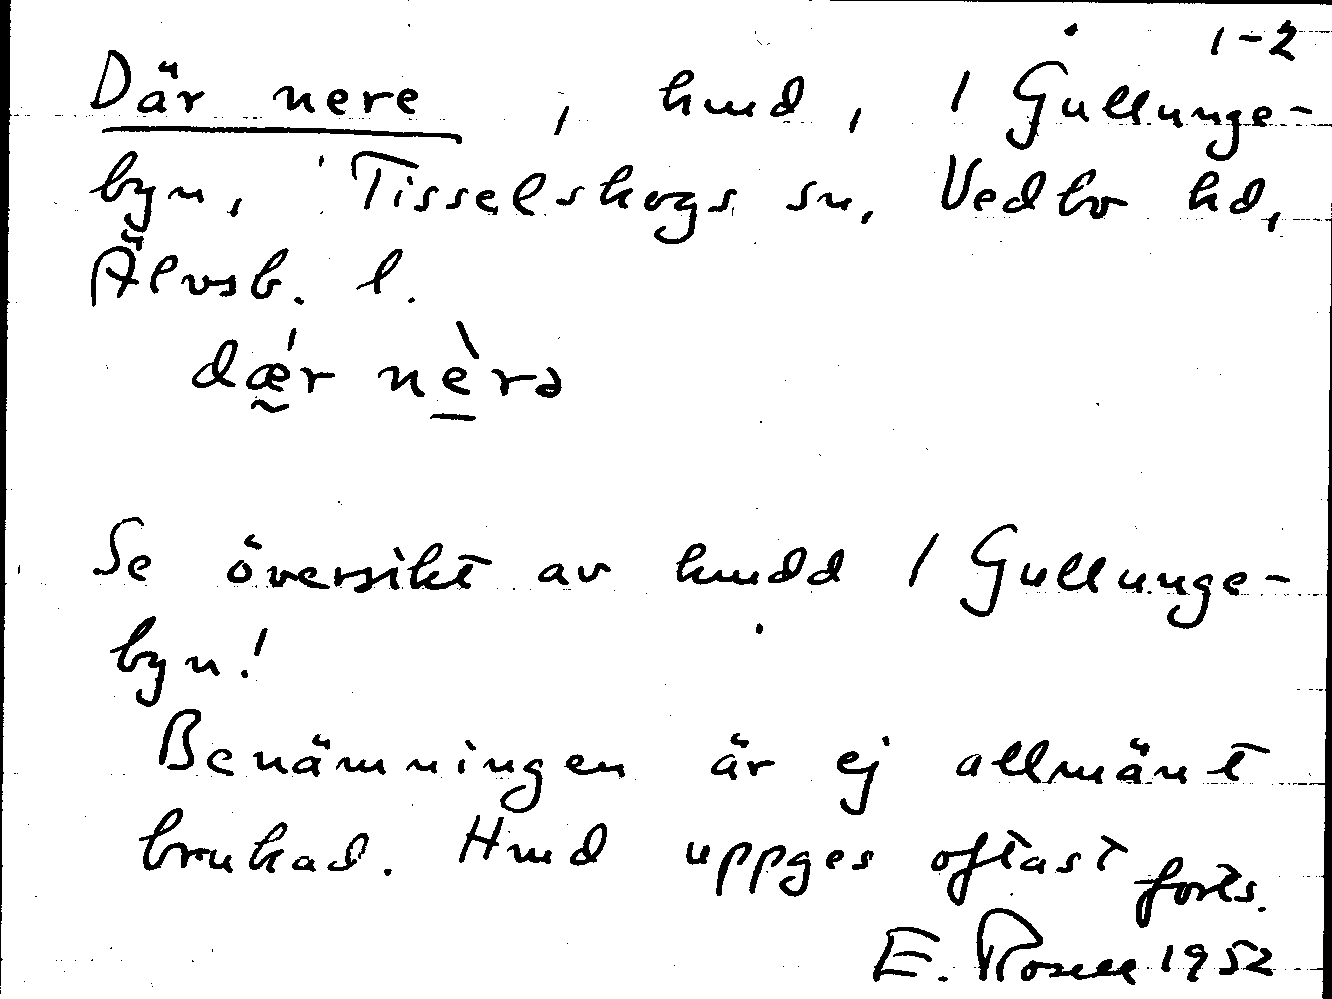 1-2
Där nere , hmd, 1 Gullunge-
byn, Tisselskogs sn, Vedbo hd,
Älvsb. l.
dǽr nèrə
Se översikt av hmdd 1 Gullunge-
byn!
Benämningen är ej allmänt
brukad. Hmd uppges oftast forts.
E. Rosell 1952